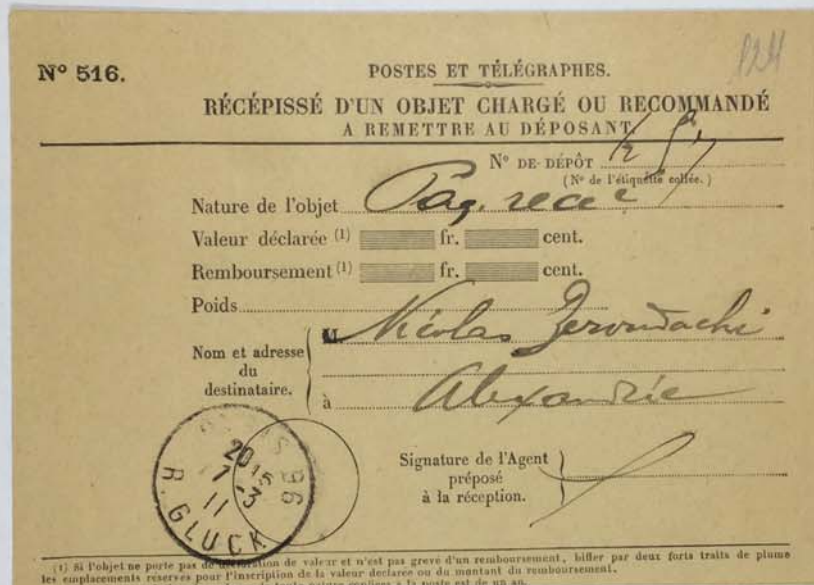 N° 516.
POSTES ET TÉLÉGRAPHES.
RÉCÉPISSÉ D'UN OBJET CHARGÉ OU RECOMMANDÉ
A REMETTRE AU DÉPOSANT
N° DE DÉPÔT
(N° de l'étiquette collée.)
Nature de l'objet Paq. recé
Valeur déclarée (1) fr. cent.
Remboursement (1) fr. cent.
Poids
M Nicolas Zervoudachi
Nom et adresse
du
destinataire.
à Alexandrie
PARIS 96
20 15
7 -3
11
R. GLUCK
Signature de l'Agent
préposé
à la réception.
(1) Si l'objet ne porte pas de déclaration de valeur et n'est pas grevé d'un remboursement, biffer par deux forts traits de plume
les emplacements réservés pour l'inscription de la valeur déclarée ou du montant du remboursement.
à la poste est de un an.